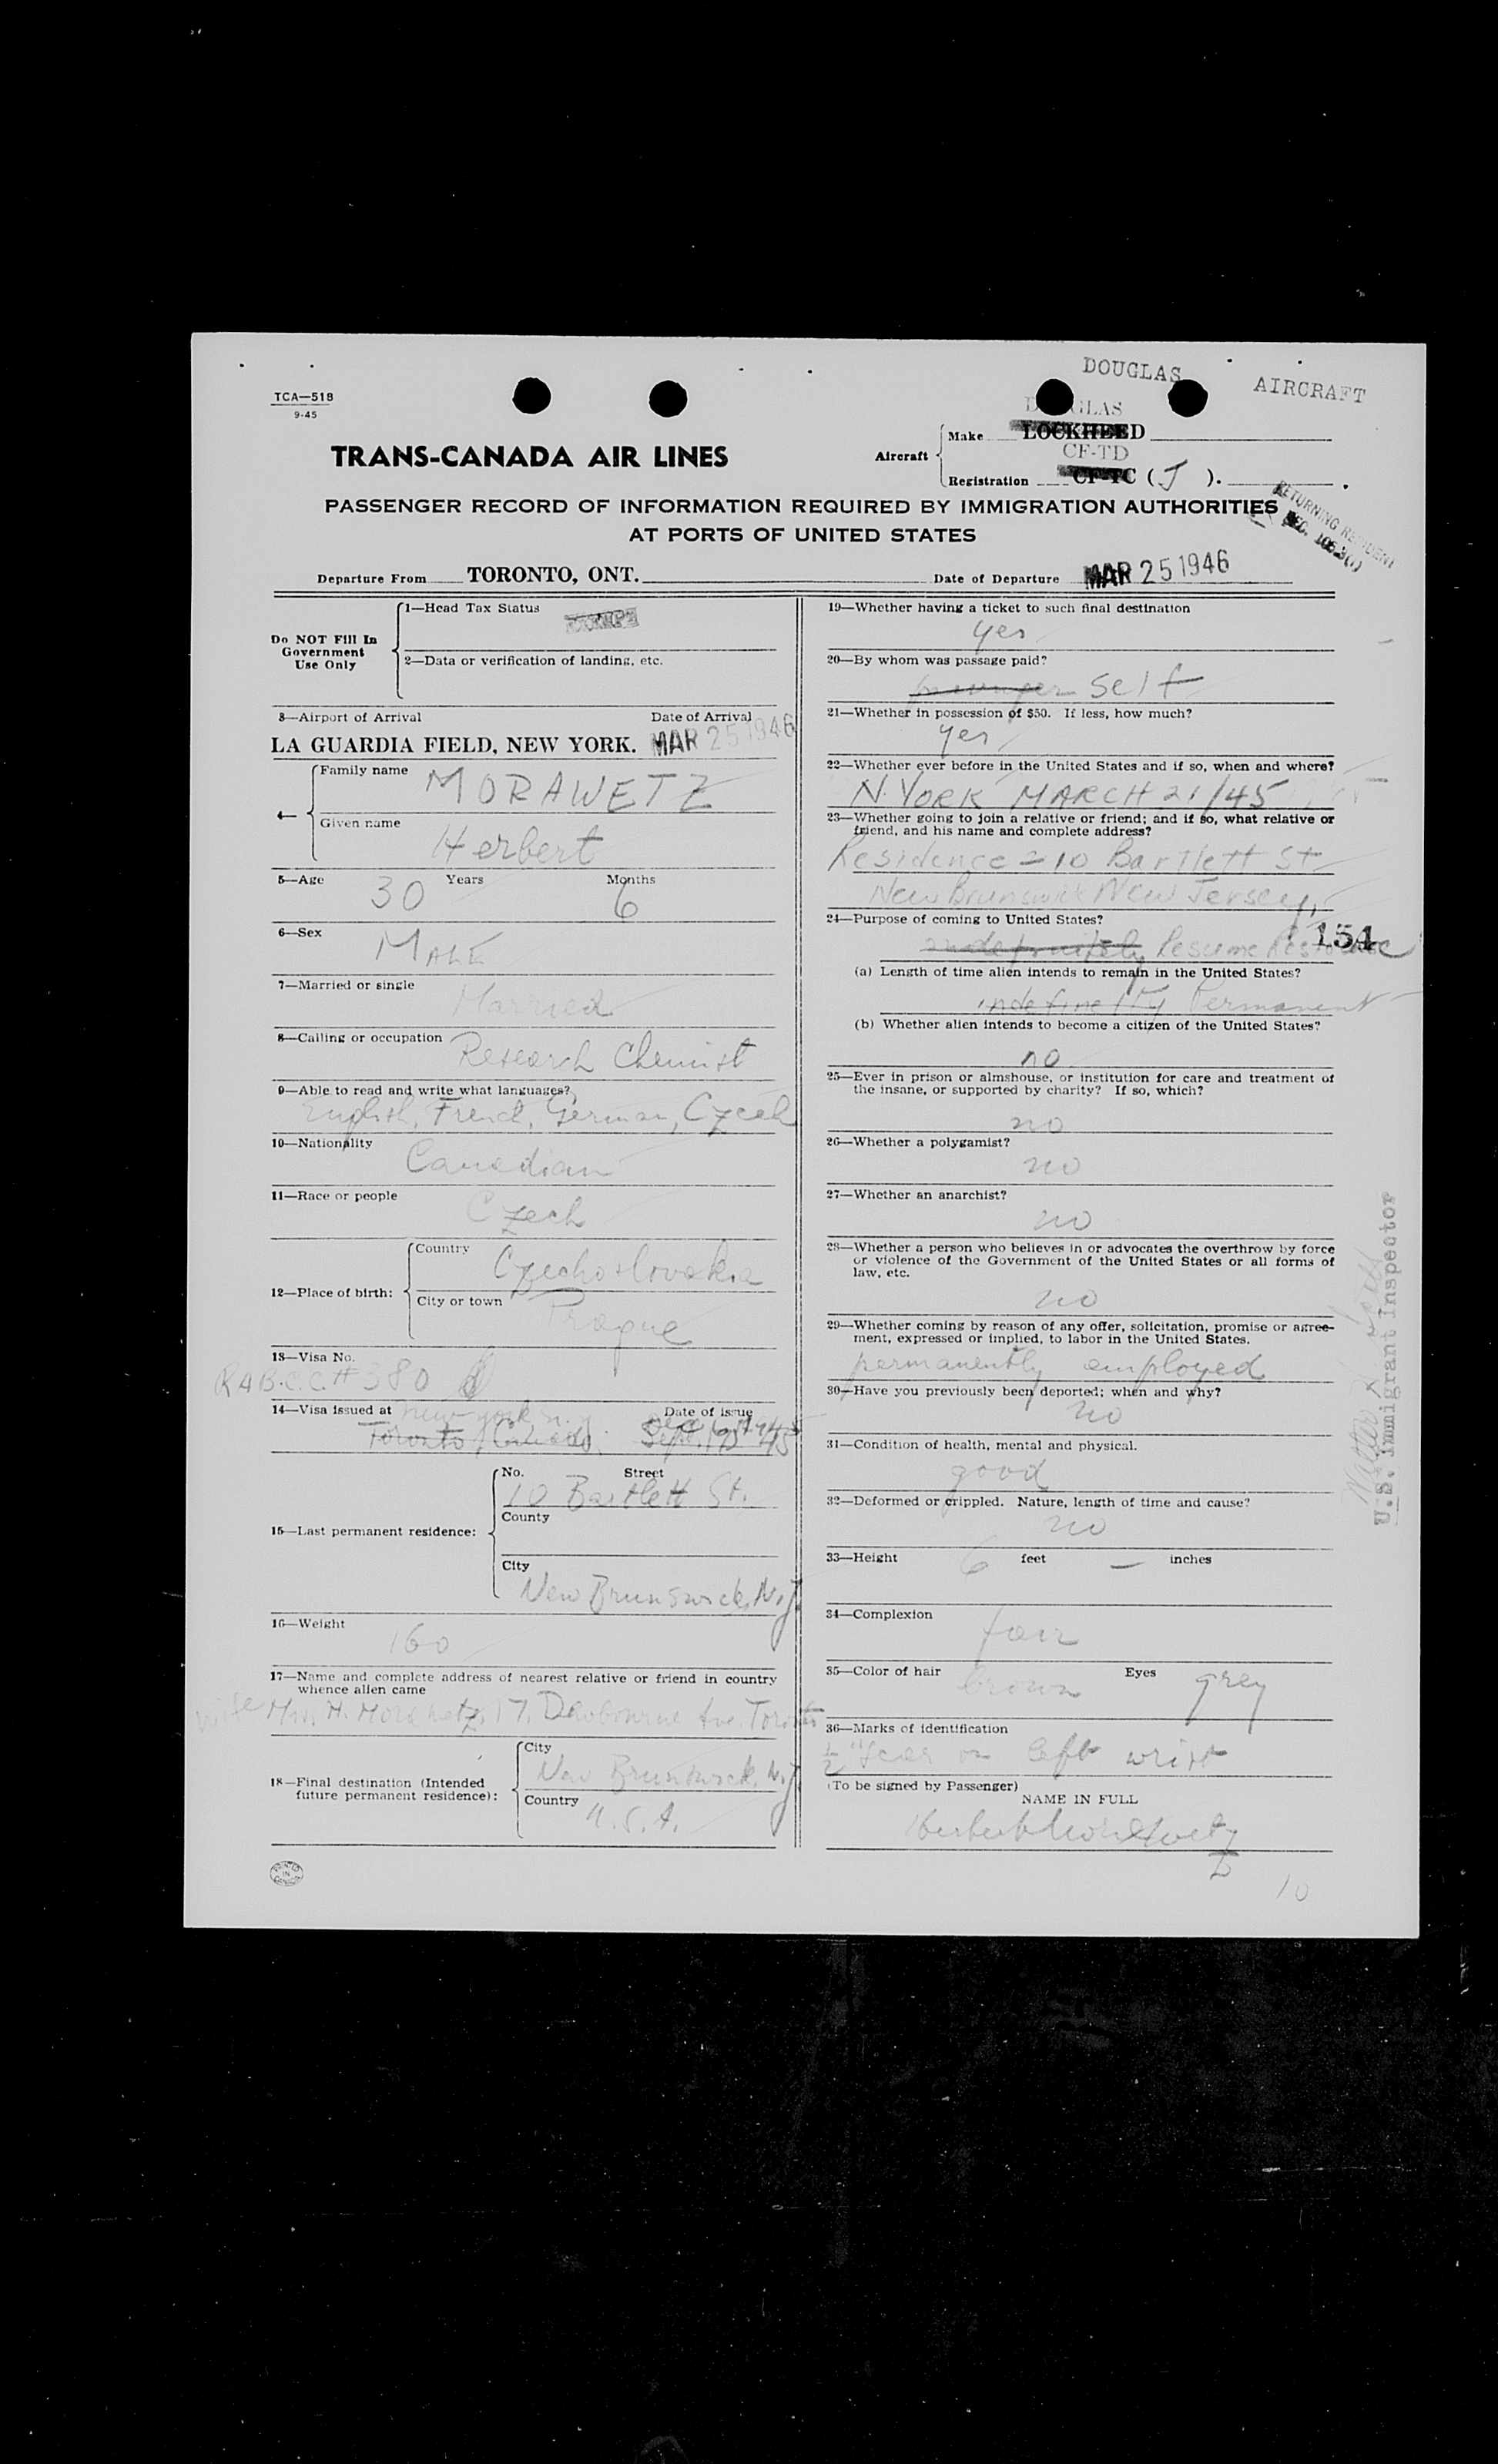 DOUGLAS AIRCRAFT
TCA—518
9-45
TRANS-CANADA AIR LINES
Aircraft
Make LOCKHEED
CF-TD
Registration CF-TC ( J ).
PASSENGER RECORD OF INFORMATION REQUIRED BY IMMIGRATION AUTHORITIES
AT PORTS OF UNITED STATES
RETURNING RESIDENT
SEC.
Departure From TORONTO, ONT.
Date of Departure MAR 25 1946
Do NOT Fill In
Government
Use Only
1—Head Tax Status
2—Data or verification of landing, etc.
3—Airport of Arrival Date of Arrival
LA GUARDIA FIELD, NEW YORK. MAR 25 1946
4—
Family name MORAWETZ
Given name Herbert
5—Age 30 Years Months 6
6—Sex MALE
7—Married or single Married
8—Calling or occupation Research Chemist
9—Able to read and write what languages?
English, French, German, Czech
10—Nationality Canadian
11—Race or people Czech
12—Place of birth:
Country Czechoslovakia
City or town Prague
13—Visa No.
R4 B.C.C. # 380
14—Visa issued at New York N.Y. Date of issue
Toronto, Canada. Sept. 45
15—Last permanent residence:
No. Street
10 Bartlett St.
County
City
New Brunswick, N.J.
16—Weight 160
17—Name and complete address of nearest relative or friend in country
whence alien came
wife Mrs. H. Morawetz, 17, Ave. Toronto
18—Final destination (Intended
future permanent residence):
City
New Brunswick, N.J.
Country U.S.A.
19—Whether having a ticket to such final destination
yes
20—By whom was passage paid?
passenger self
21—Whether in possession of $50. If less, how much?
yes
22—Whether ever before in the United States and if so, when and where?
N. YORK MARCH 21/45
23—Whether going to join a relative or friend; and if so, what relative or
friend, and his name and complete address?
Residence = 10 Bartlett St
New Brunswick New Jersey,
24—Purpose of coming to United States?
154
indefinitely Resume Residence
(a) Length of time alien intends to remain in the United States?
indefinetly Permanent
(b) Whether alien intends to become a citizen of the United States?
no
25—Ever in prison or almshouse, or institution for care and treatment of
the insane, or supported by charity? If so, which?
no
26—Whether a polygamist?
no
27—Whether an anarchist?
no
28—Whether a person who believes in or advocates the overthrow by force
or violence of the Government of the United States or all forms of
law, etc.
no
29—Whether coming by reason of any offer, solicitation, promise or agree-
ment, expressed or implied, to labor in the United States.
permanently employed
30—Have you previously been deported; when and why?
no
31—Condition of health, mental and physical.
good
32—Deformed or crippled. Nature, length of time and cause?
no
33—Height 6 feet — inches
34—Complexion fair
35—Color of hair brown Eyes grey
36—Marks of identification
1/2" scar on left wrist
(To be signed by Passenger)
NAME IN FULL
Herbert Morawetz
10
U.S. Immigrant Inspector